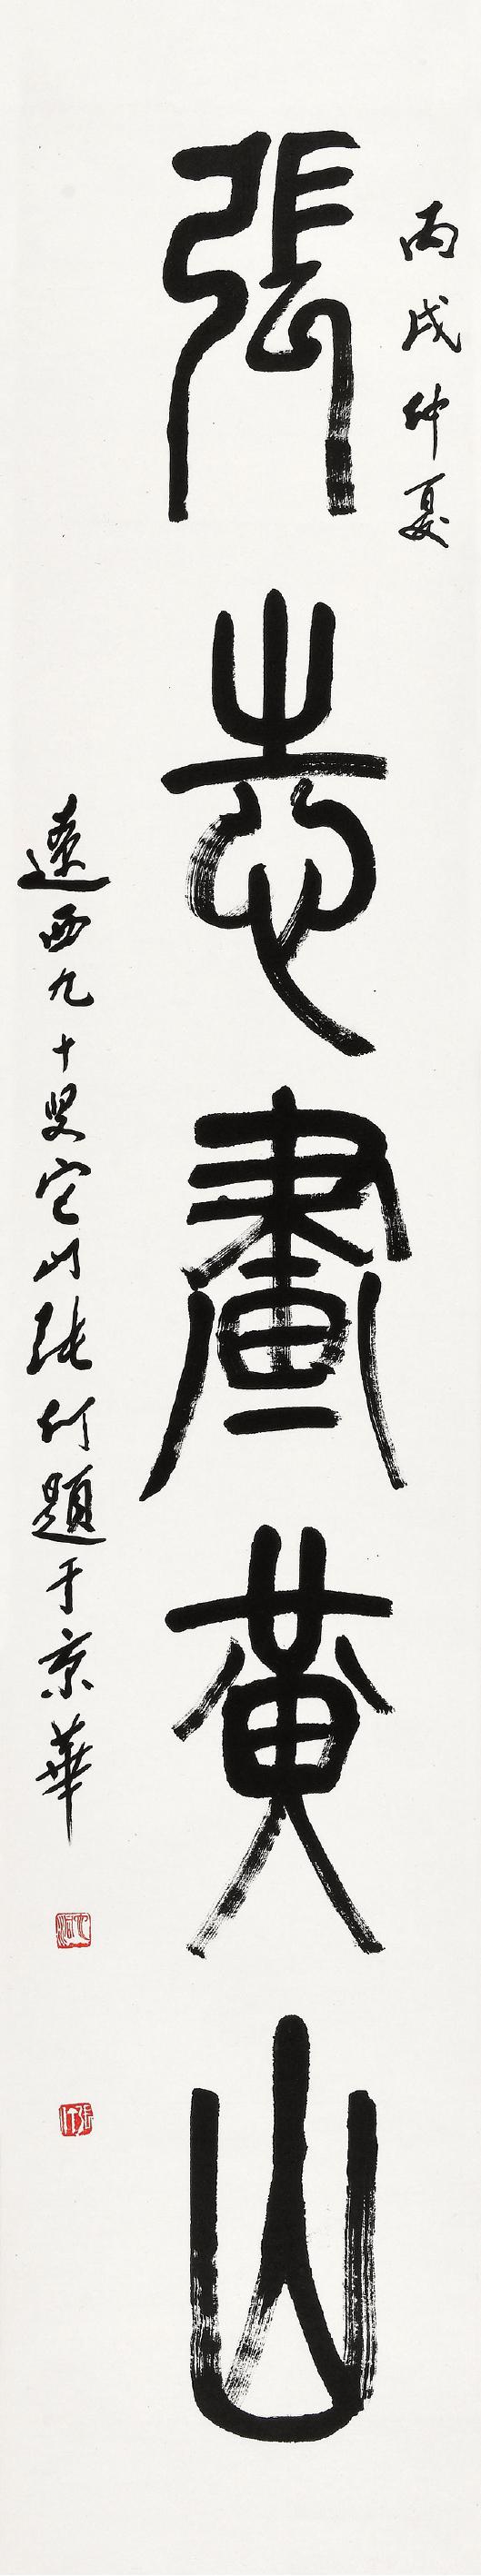 丙戌仲夏
張志畫黃山
遼西九十叟它山張仃題于京華
張仃